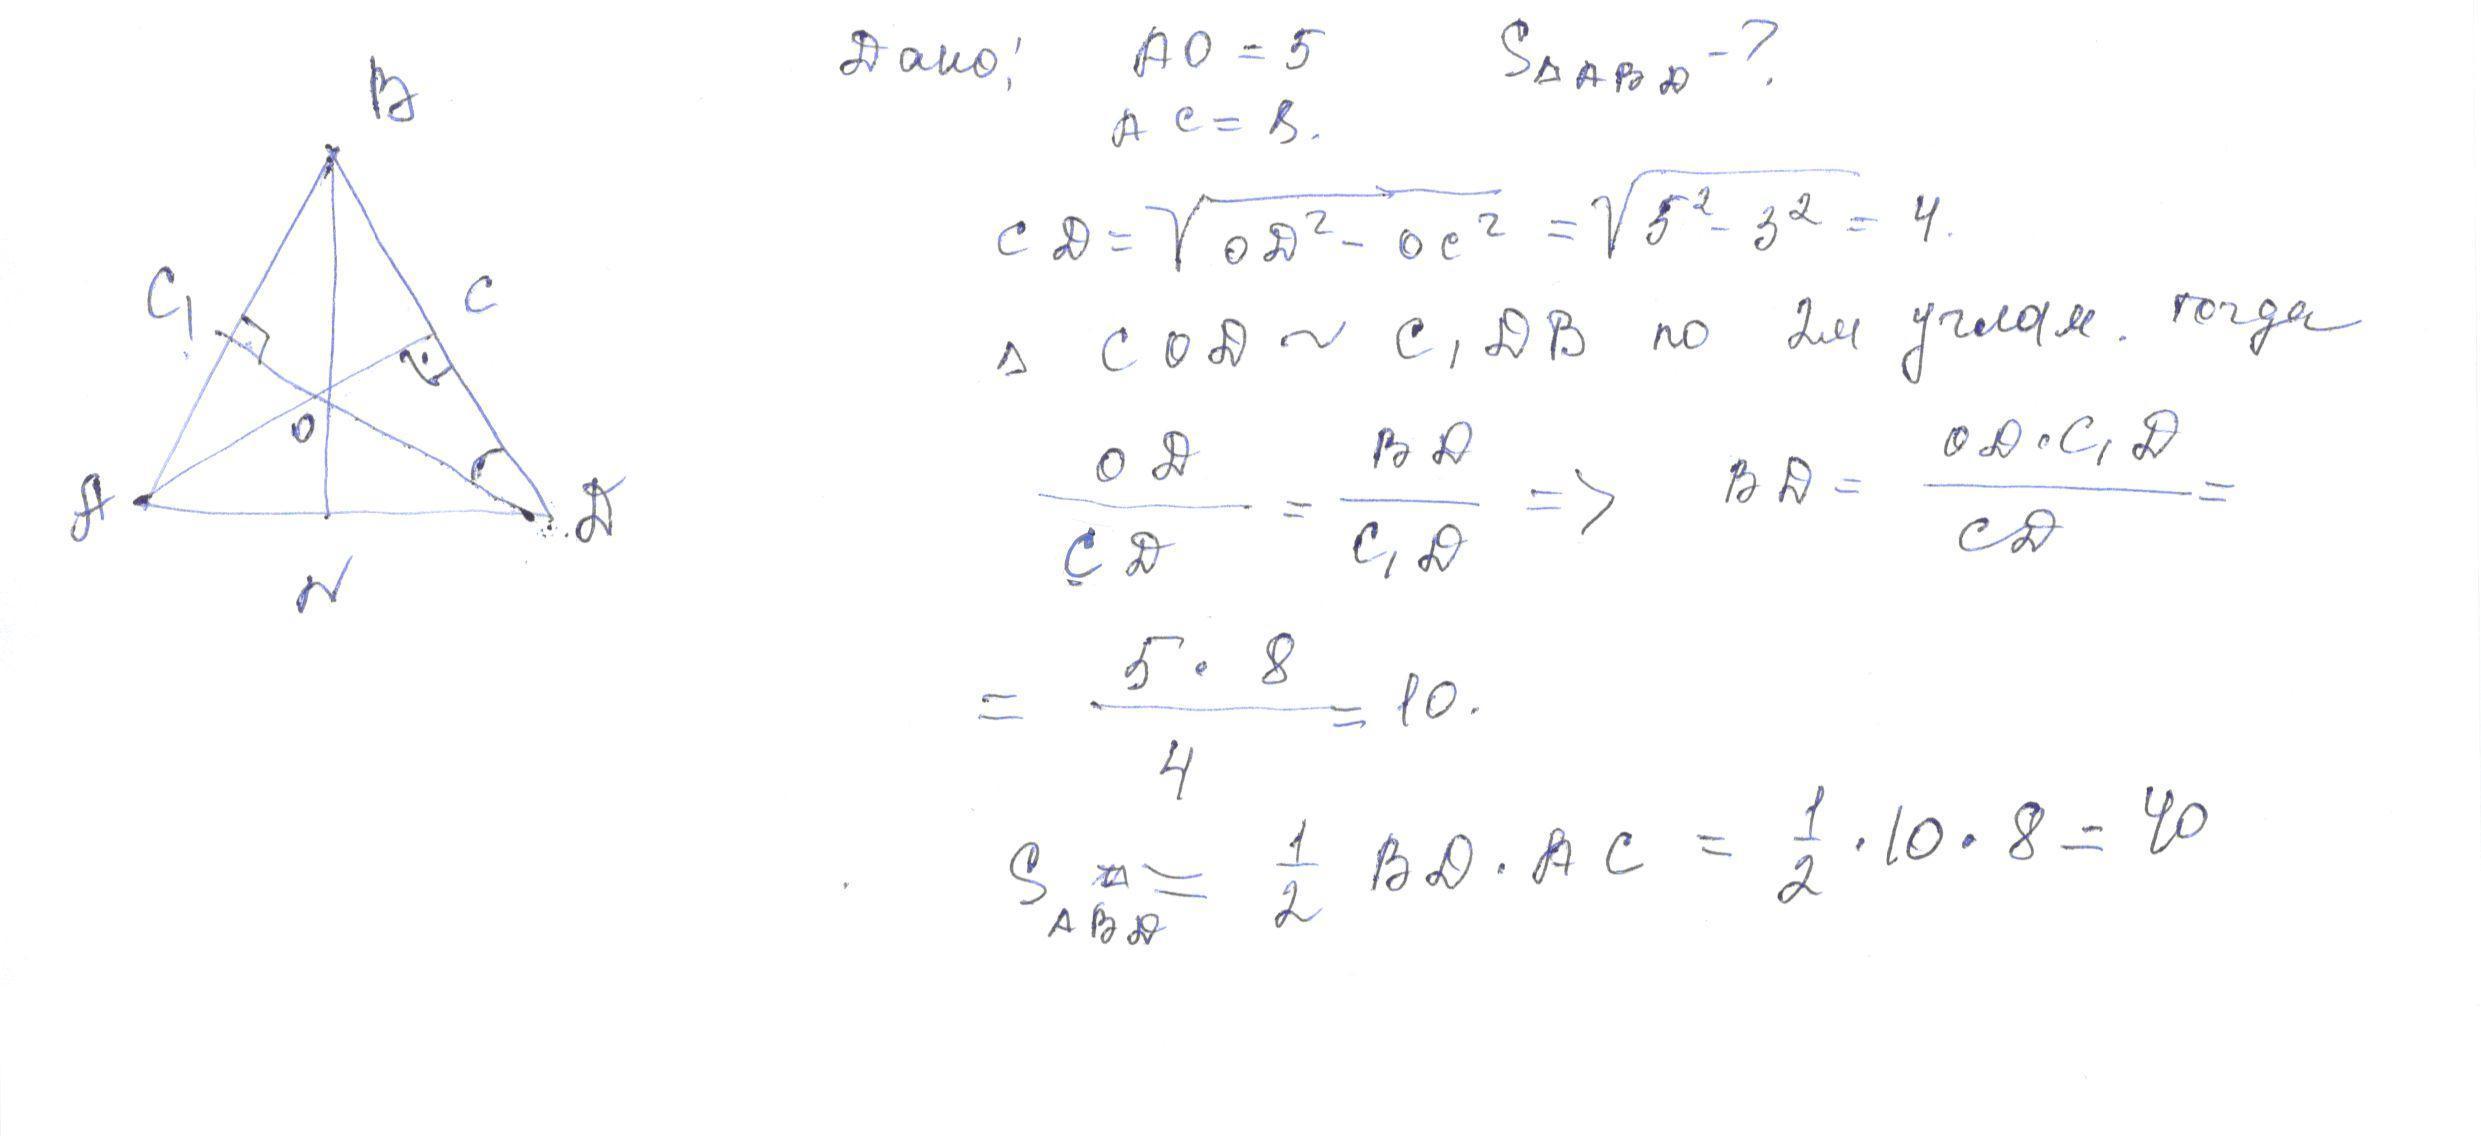 B
C₁
C
O
A
D
N
Дано: AO = 5 S△ABD - ?
AC = 8.
CD = √(OD² - OC²) = √(5² - 3²) = 4.
△ COD ~ C₁DB по 2м углам. тогда
OD/CD = BD/C₁D => BD = OD·C₁D/CD =
= 5·8/4 = 10.
S△ABD = 1/2 BD·AC = 1/2·10·8 = 40